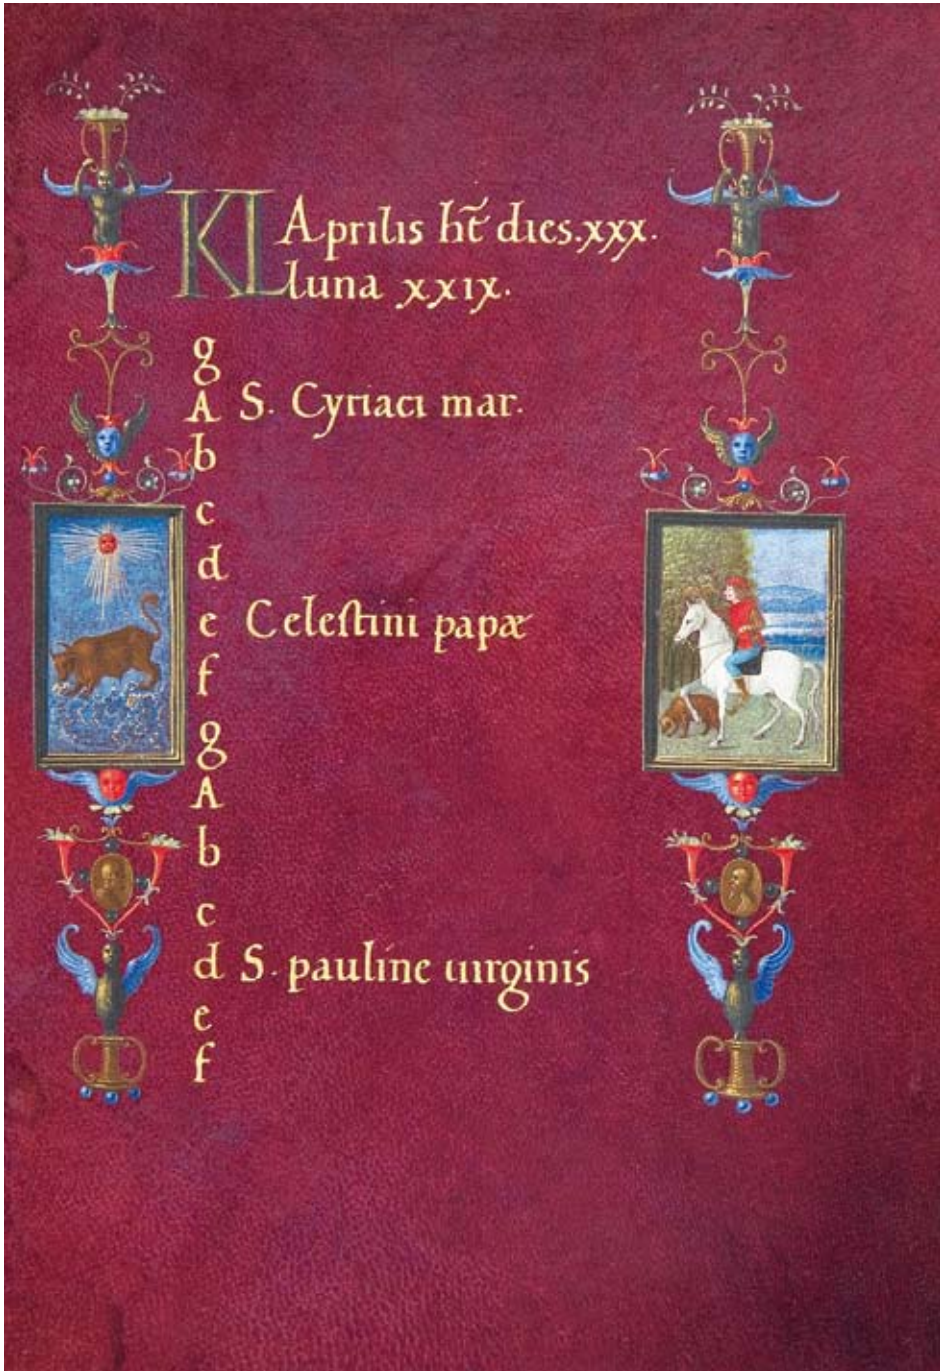 KL Aprilis ht̃ dies.xxx.
luna xxix.
g
A S. Cyriaci mar.
b
c
d
e Celestini papæ
f
g
A
b
c
d S. pauline uirginis
e
f